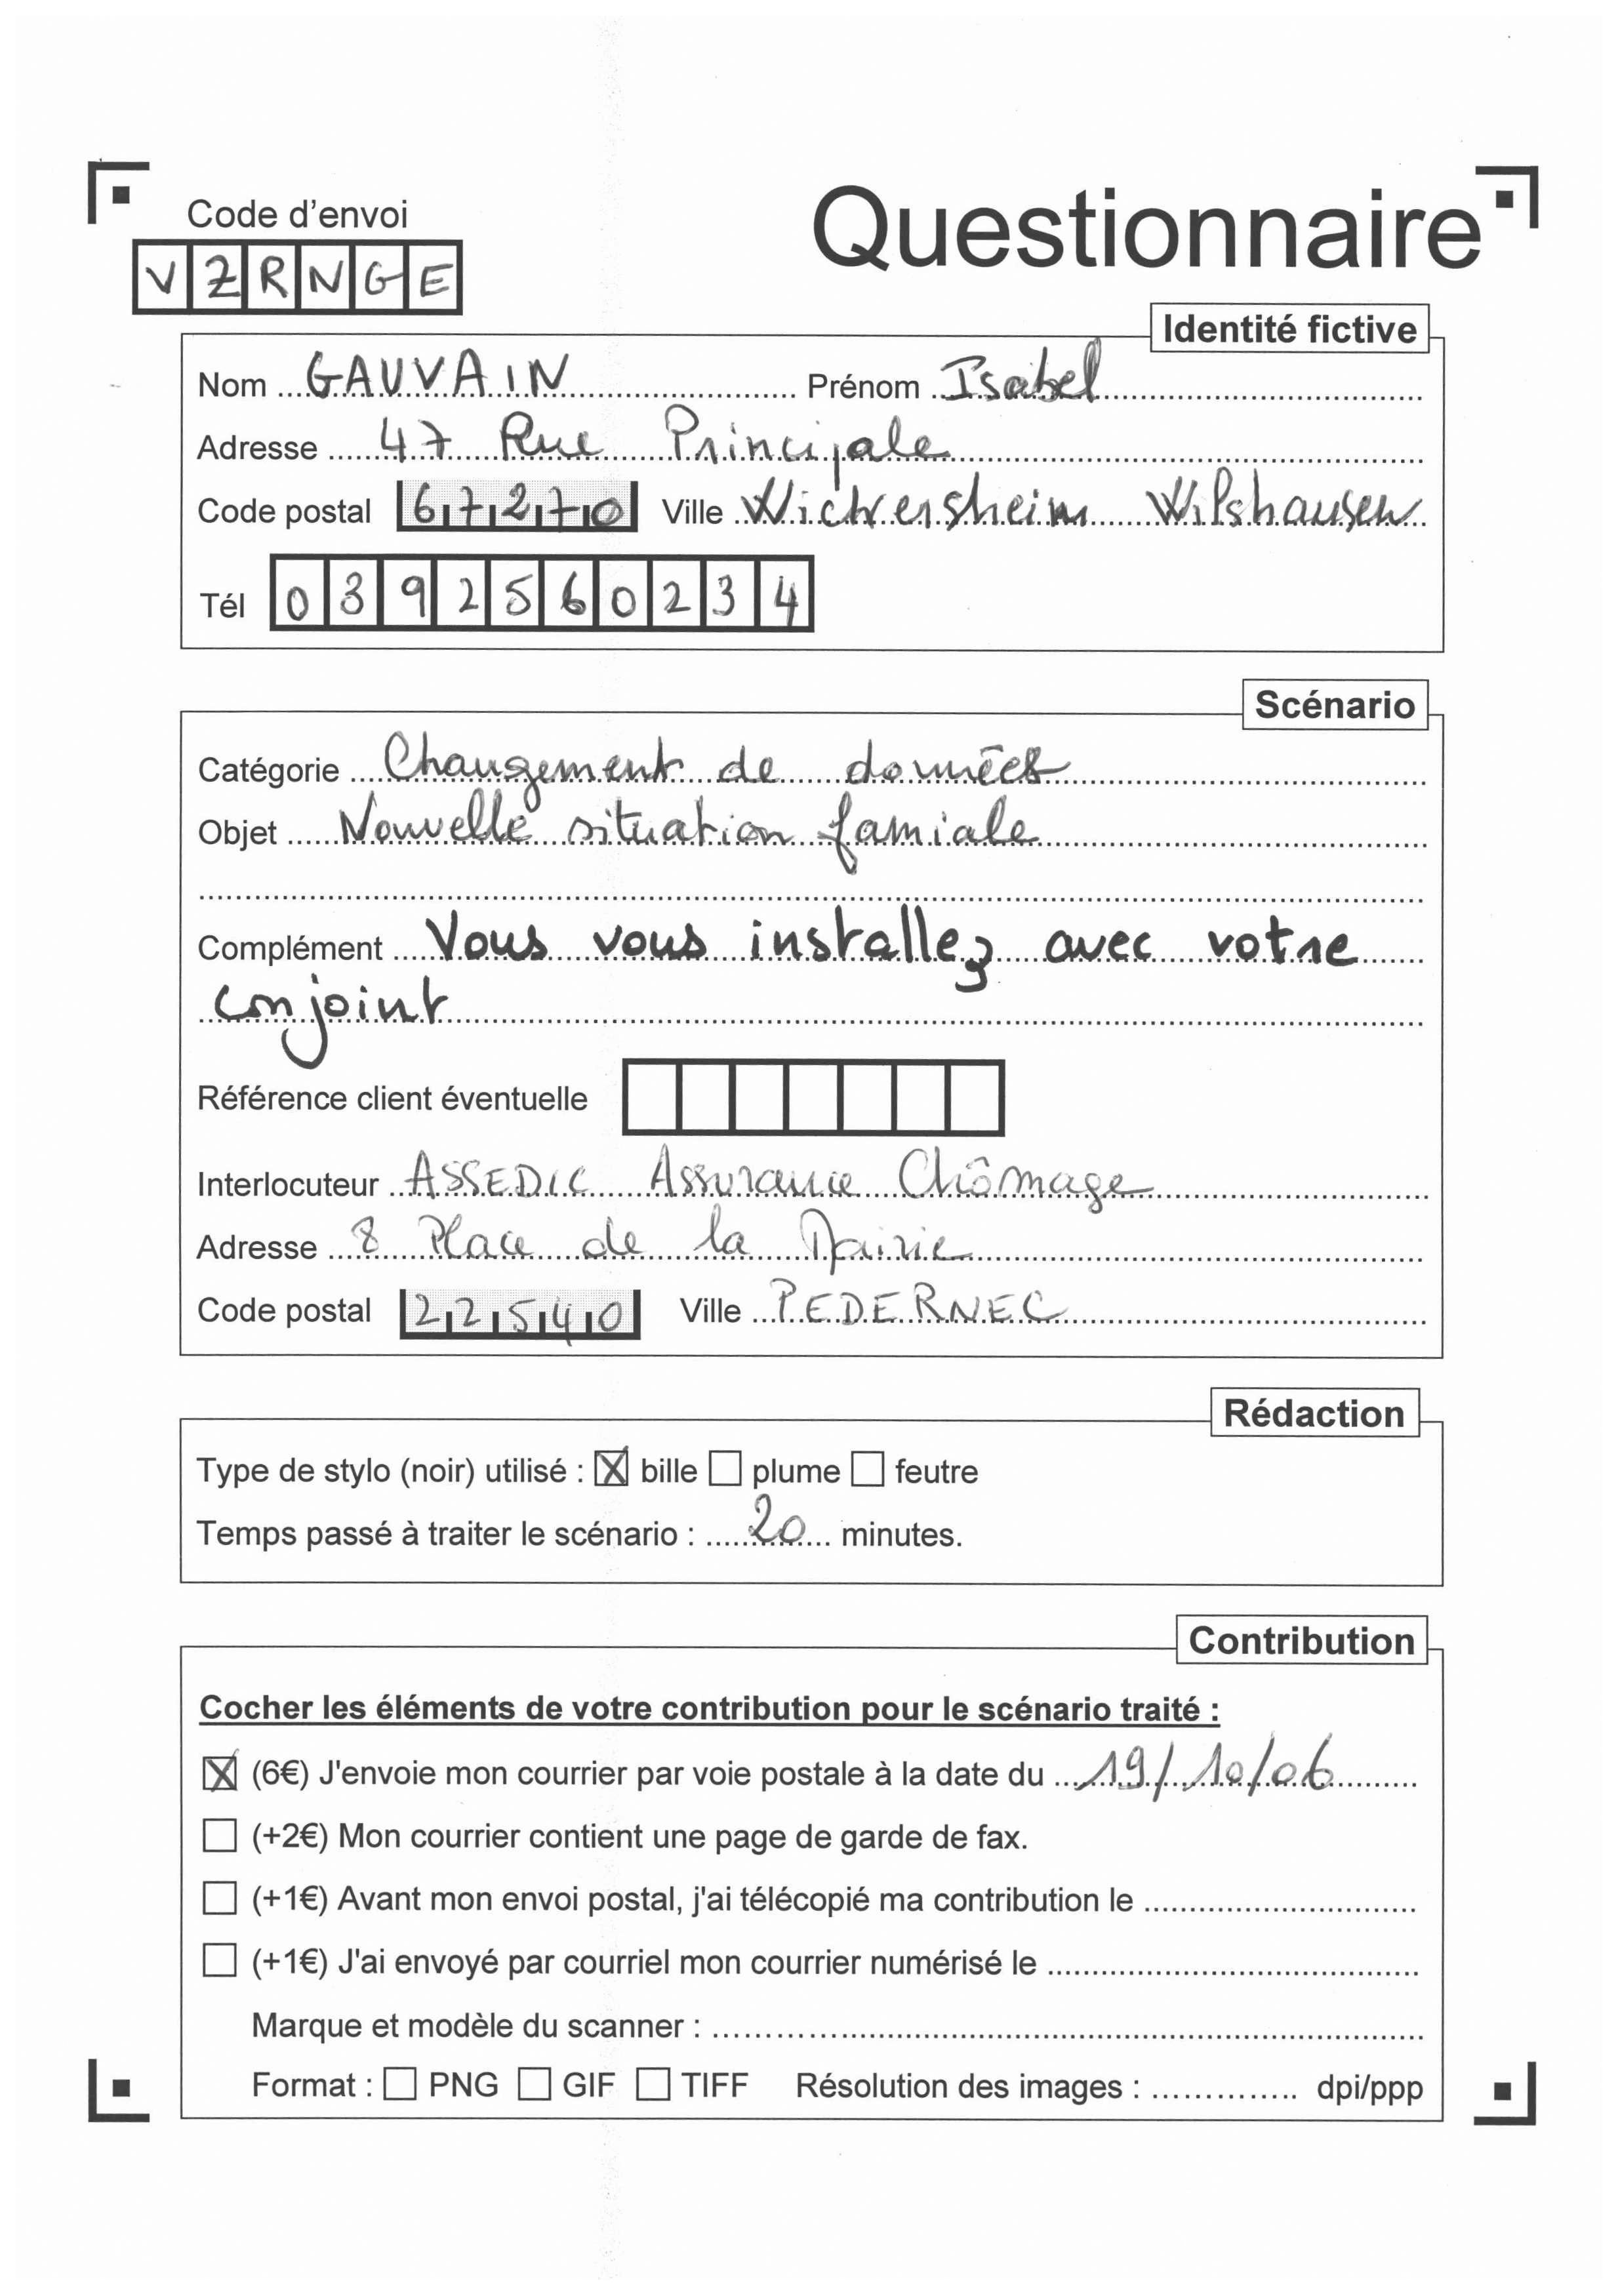 Code d'envoi
VZRNGE
Questionnaire
Identité fictive
Nom GAUVAIN Prénom Isabel
Adresse 47 Rue Principale
Code postal 67270 Ville Wickersheim Wilshausen
Tél 0392560234
Scénario
Catégorie Changement de données
Objet Nouvelle situation famiale
Complément Vous vous installez avec votre
conjoint
Référence client éventuelle
Interlocuteur ASSEDIC Assurance Chômage
Adresse 8 Place de la Mairie
Code postal 22540 Ville PEDERNEC
Rédaction
Type de stylo (noir) utilisé : ☒ bille ☐ plume ☐ feutre
Temps passé à traiter le scénario : 20 minutes.
Contribution
Cocher les éléments de votre contribution pour le scénario traité :
☒ (6€) J'envoie mon courrier par voie postale à la date du 19/10/06
☐ (+2€) Mon courrier contient une page de garde de fax.
☐ (+1€) Avant mon envoi postal, j'ai télécopié ma contribution le
☐ (+1€) J'ai envoyé par courriel mon courrier numérisé le
Marque et modèle du scanner :
Format : ☐ PNG ☐ GIF ☐ TIFF Résolution des images : dpi/ppp